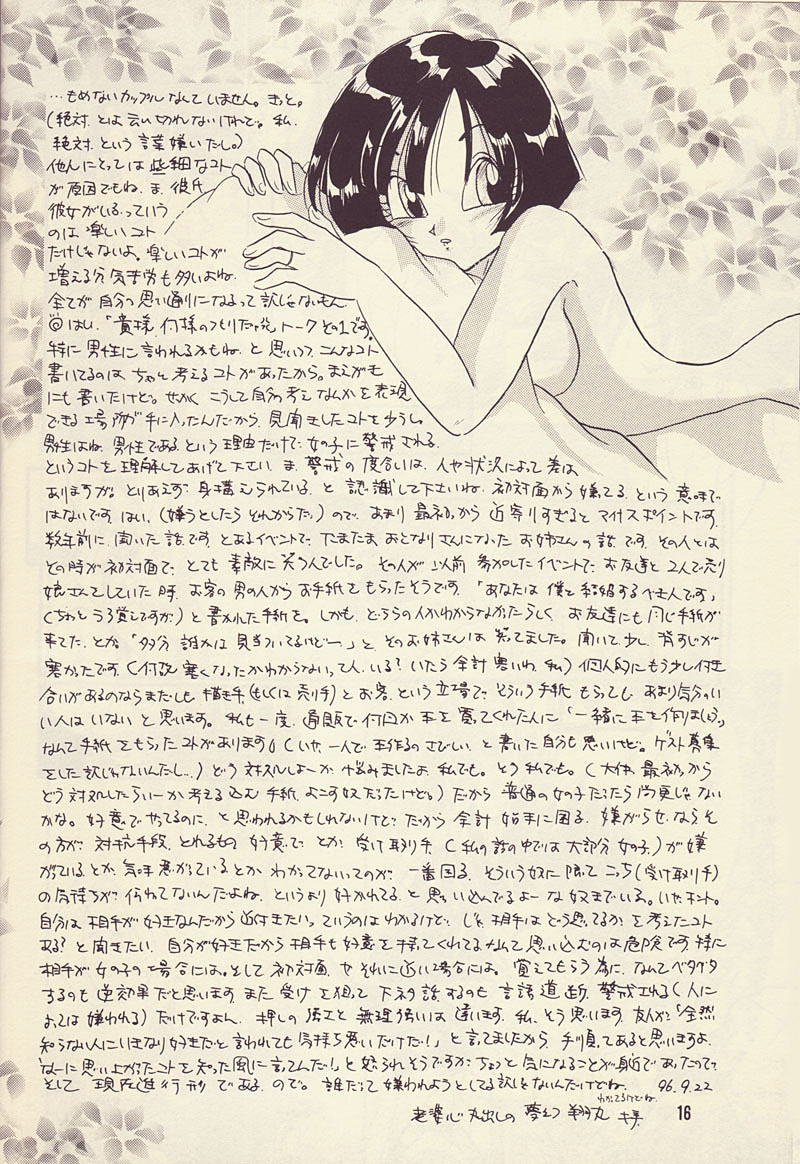 …もめないカップルなんていません。きっと。
(絶対とは云い切れないけれど。私、
絶対という言葉嫌いだし。)
他人にとっては些細なコト
が原因でもね、ま、彼氏
彼女がいるっていう
のは楽しいコト
だけじゃないよ。楽しいコトが
増える分気苦労も多いよね。
全てが自分の思い通りになるって訳じゃないもん。
はい、「貴様何様のつもりだっ花トークその1です。
特に男性に言われるかもね、と思いつつ、こんなコト
書いてるのはちょっと考えるコトがあったから。まえがき
にも書いたけど。せっかくこうして自分の考えなんかを表現
できる場所が手に入ったんだから、見聞きしたコトを少し。
男性はね、男性であるという理由だけで女の子に警戒される
というコトを理解してあげて下さい。ま、警戒の度合いは、人や状況によって差は
ありますが。とりあえず身構えられている、と認識して下さいね。初対面から嫌ってる、という意味で
はないです、はい。(嫌うとしたらそれからだ。)ので、あまり最初から近寄りすぎるとマイナスポイントです。
数年前に聞いた話です。とあるイベントで、たまたまおとなりさんになったお姉さんの話です。その人とは
その時が初対面で、とても素敵に笑う人でした。その人が以前参加したイベントでお友達と2人で売り
娘さんをしていた時、お客の男の人からお手紙をもらったそうです。「あなたは僕と結婚するべき人です」
(ちょっとうろ覚えですが)と書かれた手紙を。しかも、どちらの人かわからなかったらしく、お友達にも同じ手紙が
来てた、とか。「多分誰かは見当ついてるけどー」と、そのお姉さんは笑ってました。聞いて少し、背すじが
寒かったです。(何故寒くなったかわからないって人、いる?いたら余計寒いわ、私)個人的にもう少し付き
合いがあるのならまだしも描き手(もしくは売り手)とお客、という立場で、そういう手紙もらっても、あまり気分のい
い人はいないと思います。私も一度、通販で何回か本を買ってくれた人に「一緒に本を作りましょう」
なんて手紙をもらったコトがあります。(いや、一人で本作るのさびしい、と書いた自分も悪いけど。ゲスト募集
をした訳じゃないんだし…)どう対処しよーか悩みましたよ、私でも。そう私でも。(大体、最初っから
どう対処したらいーか考え込む手紙、よこす奴だったけど。)だから普通の女の子だったら尚更じゃない
かな。好意でやってるのに、と思われるかもしれないけど、だから余計始末に困る。嫌がらせならそ
の方が対抗手段、とれるもの。好意で、とか、受け取り手(私の話の中では大部分女の子。)が嫌
がっているとか、気味悪がっているとかわかってないってのが、一番困る。そういう奴に限ってこっち(受け取り手)
の気持ちが伝わってないんだよね。というより好かれてる、と思い込んでるよーな奴までいる。いや、ホント。
自分は相手が好きなんだから近付きたい、っていうのはわかるけど、じゃ、相手はどう思ってるかを考えたコト
ある?と聞きたい。自分が好きだから相手も好意を持ってくれてるなんて思い込むのは危険です。特に
相手が女の子の場合には。そして初対面や、それに近い場合には。覚えてもらう為に、なんてベタベタ
するのも逆効果だと思います。また受けを狙って下ネタ話するのも言語道断、警戒される(人に
よっては嫌われる)だけですよん。押しの強さと無理強いは違います。私、そう思います。友人が「全然
知らない人にいきなり好きだと言われても気持ち悪いだけだ!」と言ってましたから、手順ってあると思いますよ。
「なーに思い上がったコトを知った風に言ってんだ!」と怒られそうですが、ちょっと気になることが身近であったので、
そして現在進行形である。ので。誰だって嫌われようとしてる訳じゃないんだけどね。 96.9.22
わかってるけどね。
老婆心丸出しの 翔丸
16